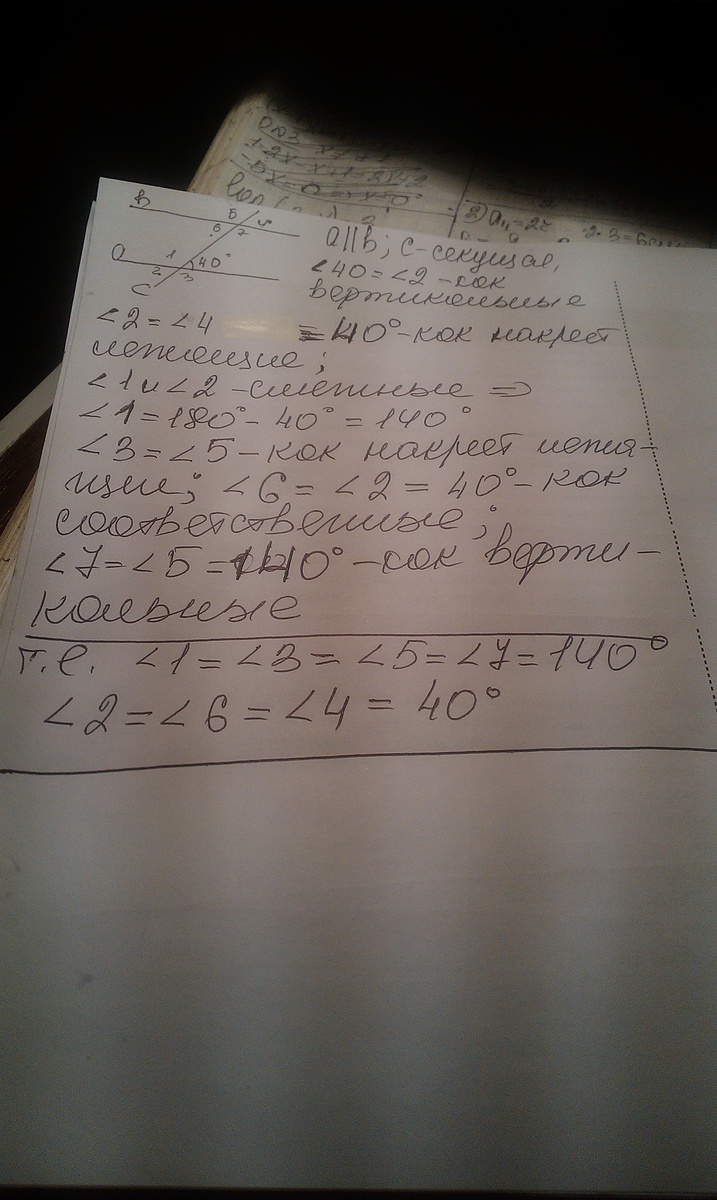 в
5
6
7
a
1
40°
2
3
c
a||b; c-секущая,
∠40=∠2-как
вертикальные
∠2=∠4 =40°-как накрест
лежащие;
∠1и∠2-смежные =>
∠1=180°-40°=140°
∠3=∠5-как накрест лежа-
щие; ∠6=∠2=40°-как
соответственные;
∠7=∠5=140°-как верти-
кальные
т.е. ∠1=∠3=∠5=∠7=140°
∠2=∠6=∠4=40°